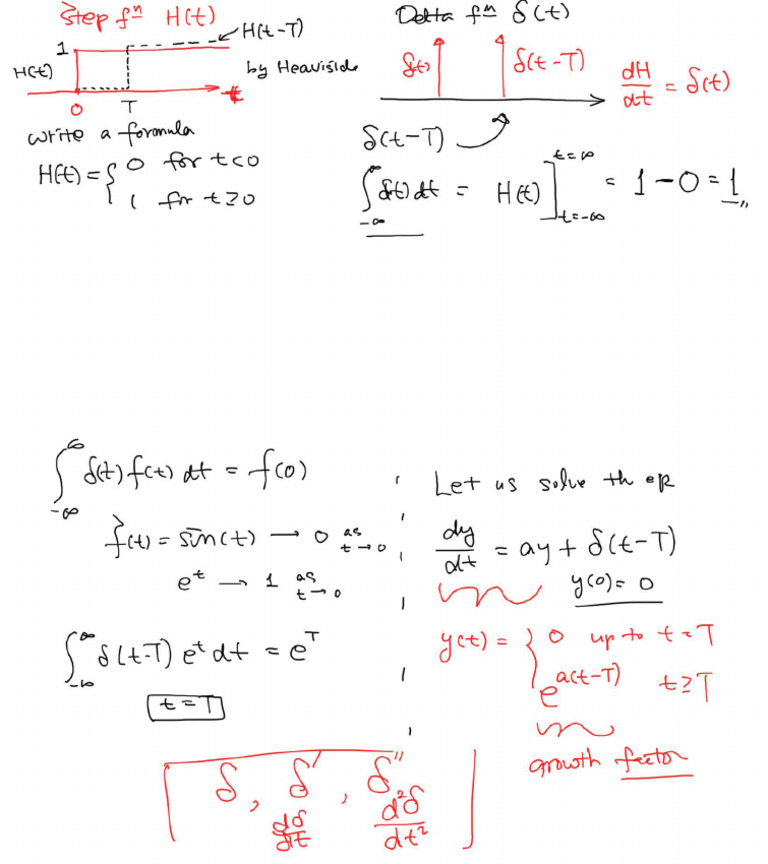 Step fⁿ H(t)
H(t-T)
1
H(t)
by Heaviside
0 T t
write a formula
H(t) = { 0 for t<0
1 for t≥0
Delta fⁿ δ(t)
δ(t) δ(t-T)
dH/dt = δ(t)
δ(t-T)
∫_{-∞}^{∞} δ(t) dt = H(t) ]_{t=-∞}^{t=∞} = 1-0 = 1
∫_{-∞}^{∞} δ(t) f(t) dt = f(0)
f(t) = sin(t) → 0 as t→0
e^t → 1 as t→0
∫_{-∞}^{∞} δ(t-T) e^t dt = e^T
t=T
Let us solve th
dy/dt = ay + δ(t-T)
y(0) = 0
y(t) = { 0 up to t=T
e^{a(t-T)} t≥T
growth factor
δ, δ', δ''
dδ/dt d²δ/dt²